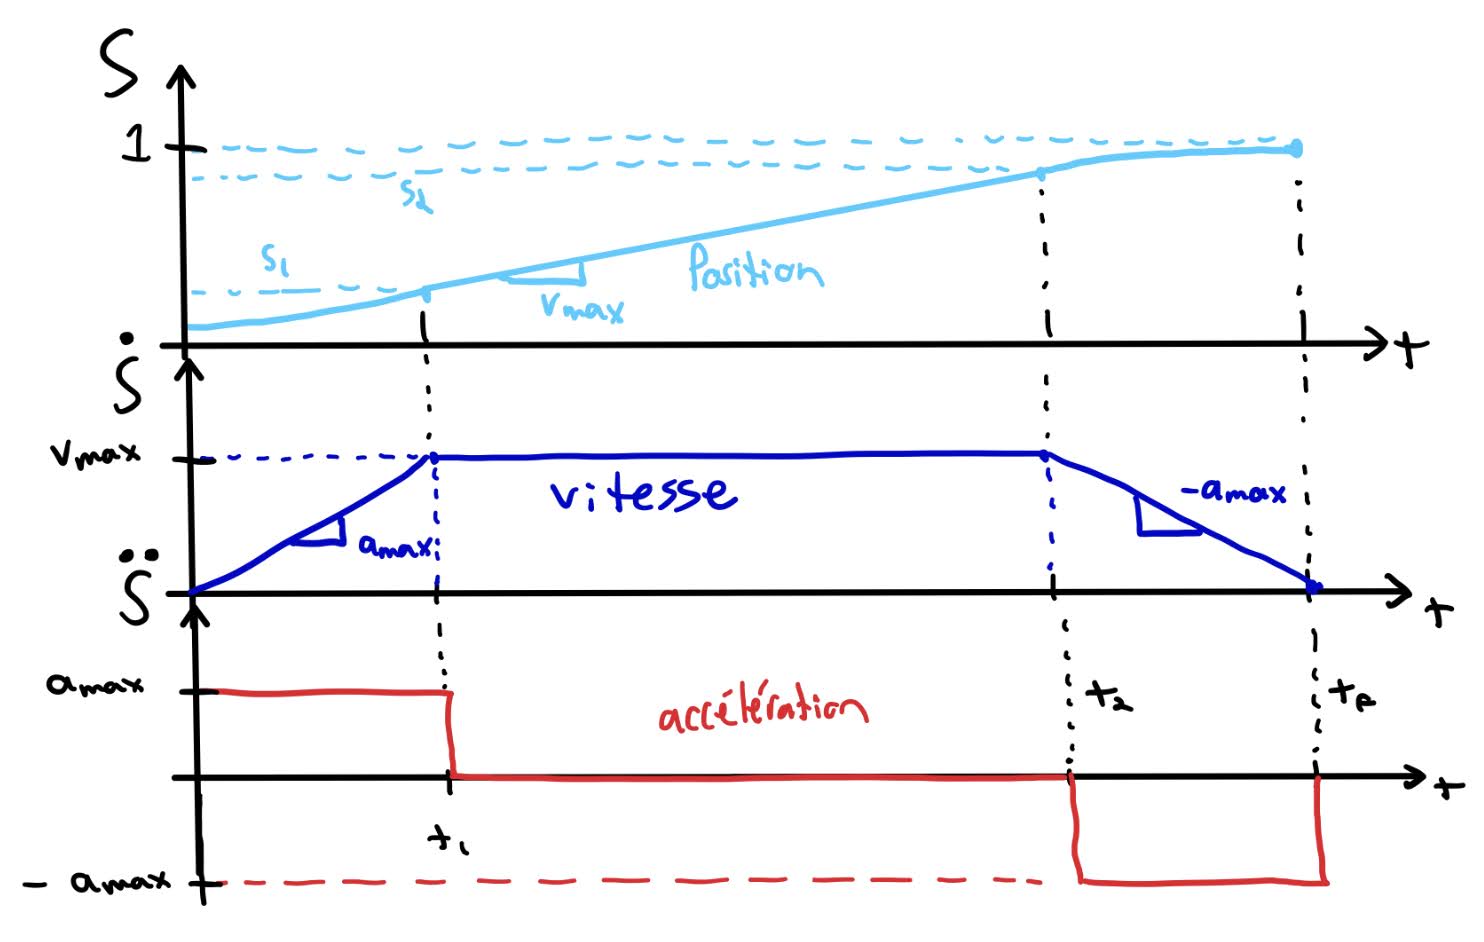 S
1
s₂
s₁
Position
vmax
t
Ṡ
vmax
vitesse
-amax
amax
t
S̈
amax
accélération
t₂
te
t
t₁
- amax